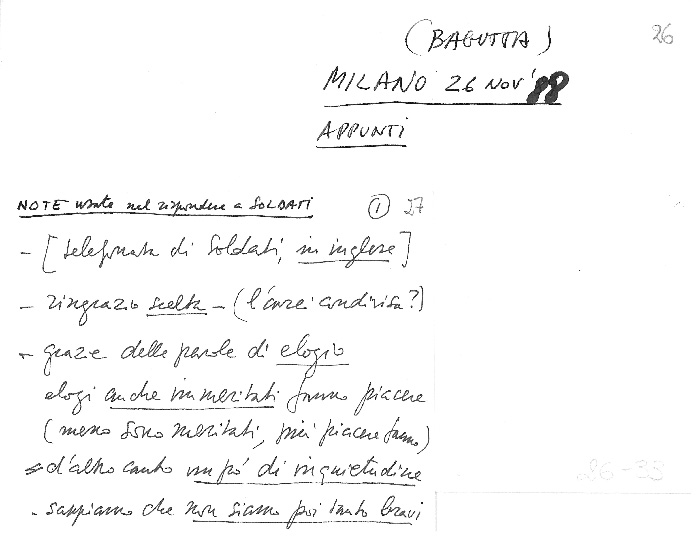 (BAGUTTA) 26
MILANO 26 NOV '88
APPUNTI
NOTE usate nel rispondere a SOLDATI ① 27
- [telefonata di Soldati, in inglese]
- ringrazio scelta - (l'avrei condivisa?)
- grazie delle parole di elogio
elogi anche immeritati fanno piacere
(meno sono meritati, più piacere fanno)
- d'altro canto un pó di inquietudine
- sappiamo che non siamo poi tanto bravi
26-35